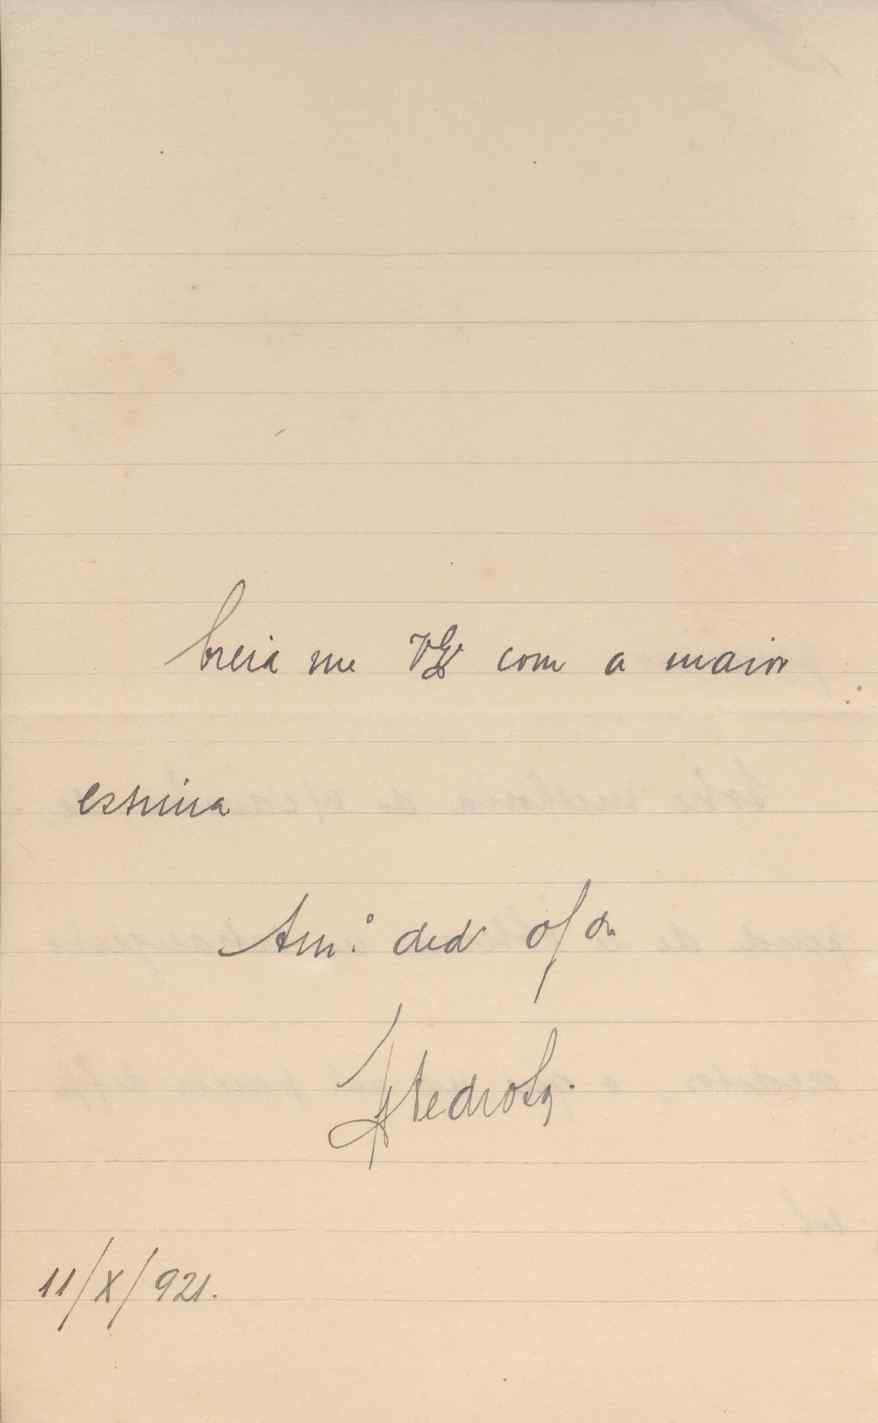 Creia me VEx com a maior
estima
Am.º ded
11/X/921.